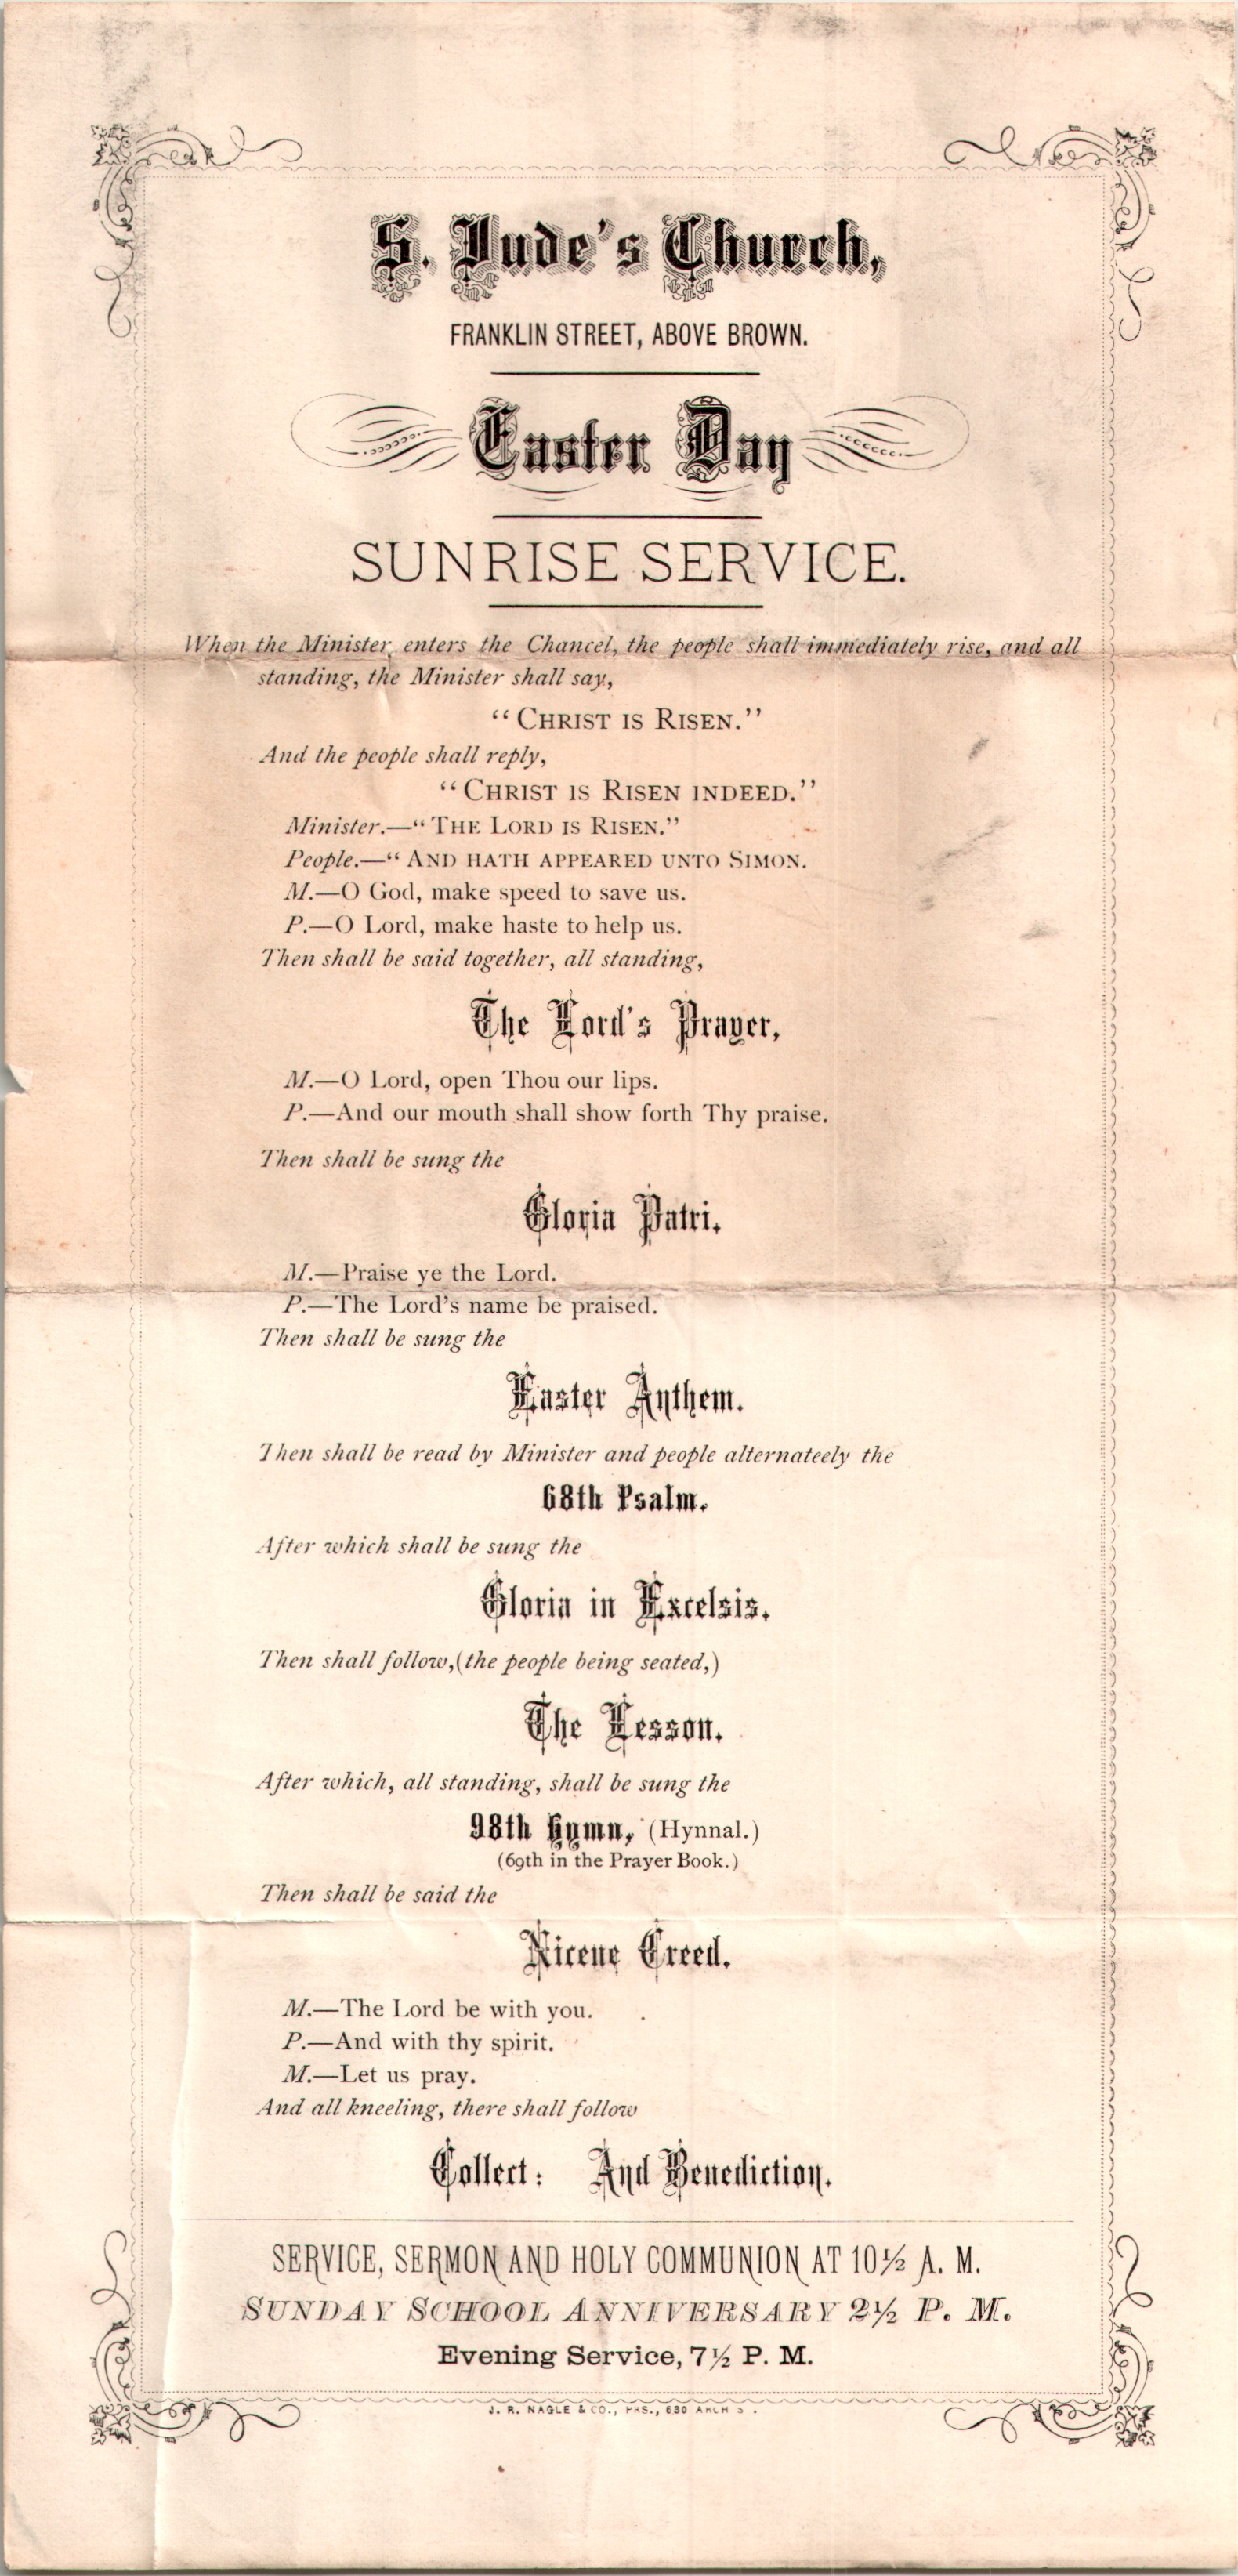 S. Jude's Church,
FRANKLIN STREET, ABOVE BROWN.
Easter Day
SUNRISE SERVICE.
When the Minister enters the Chancel, the people shall immediately rise, and all
standing, the Minister shall say,
“CHRIST IS RISEN.”
And the people shall reply,
“CHRIST IS RISEN INDEED.”
Minister.—“THE LORD IS RISEN.”
People.—“AND HATH APPEARED UNTO SIMON.
M.—O God, make speed to save us.
P.—O Lord, make haste to help us.
Then shall be said together, all standing,
The Lord's Prayer,
M.—O Lord, open Thou our lips.
P.—And our mouth shall show forth Thy praise.
Then shall be sung the
Gloria Patri.
M.—Praise ye the Lord.
P.—The Lord's name be praised.
Then shall be sung the
Easter Anthem.
Then shall be read by Minister and people alternateely the
68th Psalm.
After which shall be sung the
Gloria in Excelsis.
Then shall follow,(the people being seated,)
The Lesson.
After which, all standing, shall be sung the
98th Hymn, (Hynnal.)
(69th in the Prayer Book.)
Then shall be said the
Nicene Creed.
M.—The Lord be with you.
P.—And with thy spirit.
M.—Let us pray.
And all kneeling, there shall follow
Collect: And Benediction.
SERVICE, SERMON AND HOLY COMMUNION AT 10½ A. M.
SUNDAY SCHOOL ANNIVERSARY 2½ P. M.
Evening Service, 7½ P. M.
J. R. NAGLE & CO., PRS., 630 ARCH